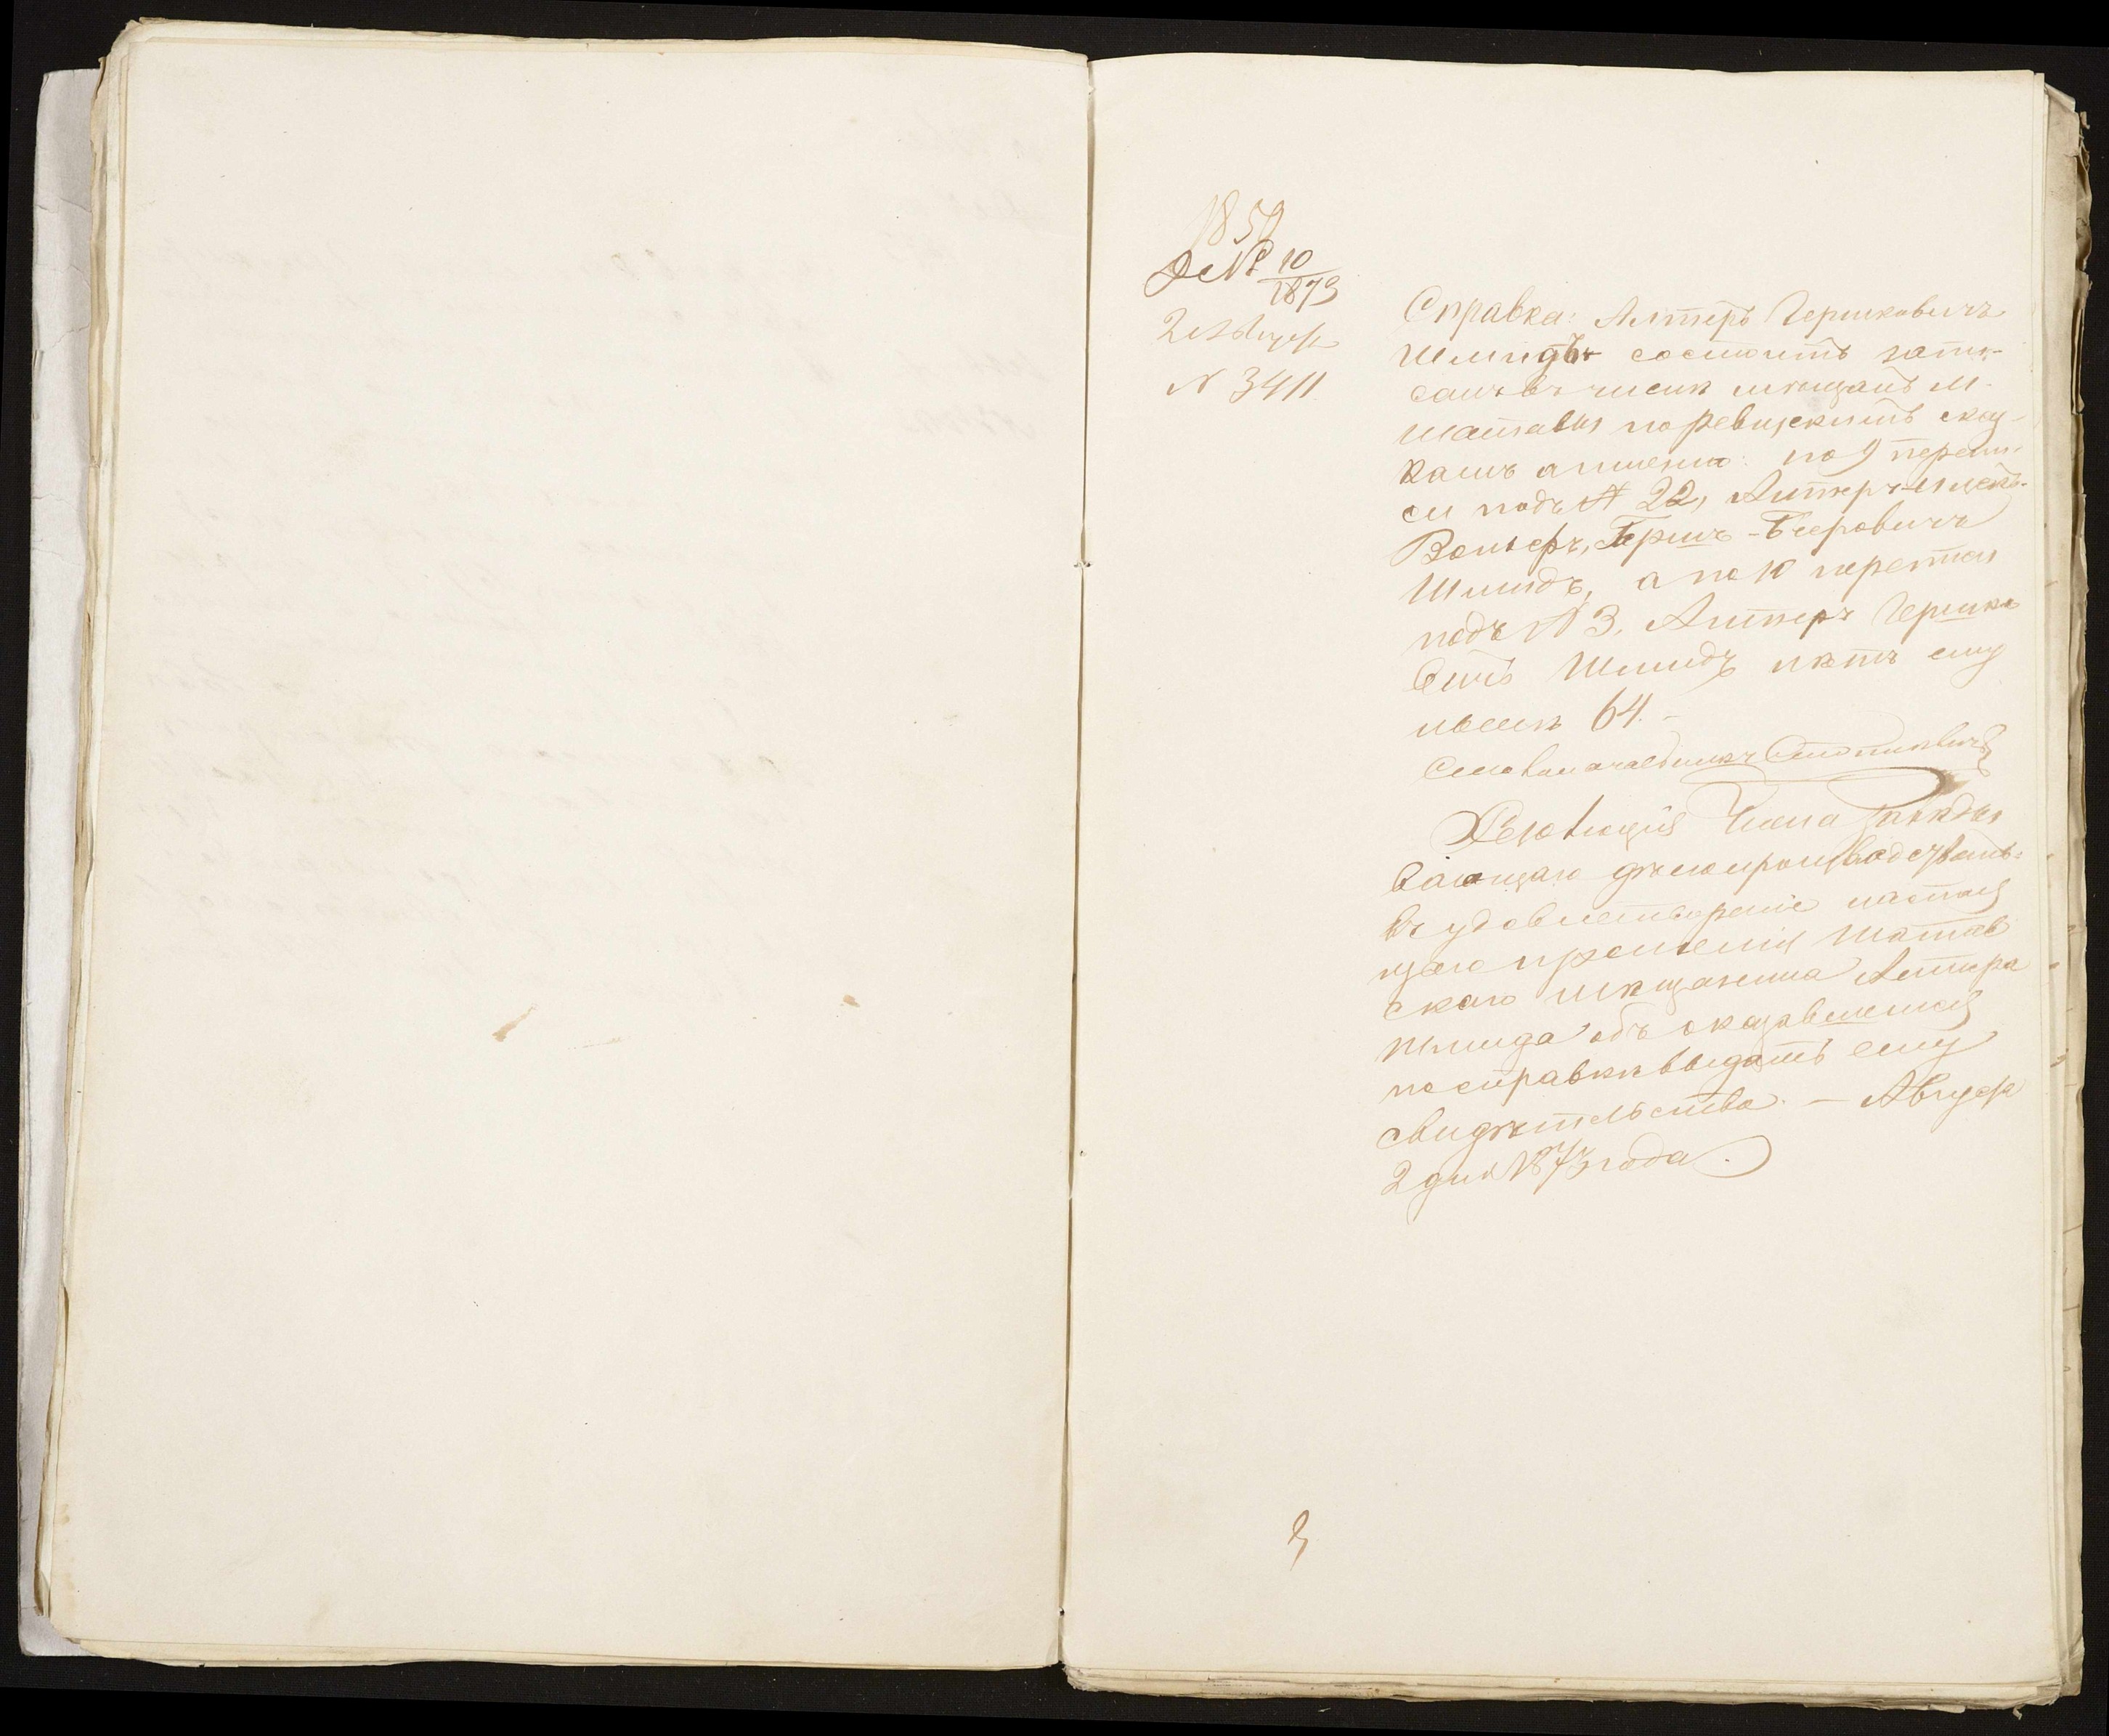 1859
Д № 10/1873
2 Август
№ 3411
Справка: Алтеръ Гершковичъ
Шмидъ состоитъ запи-
санъ въ числѣ мѣщанъ м.
Шатавы по ревизскимъ сказ-
камъ а именно: по 9 перепи-
си подъ № 22, Алтеръ-Ицекъ-
Вольфъ, Гершъ-Бееровичъ
Шмидъ, а по 10 переписи
подъ № 3. Алтеръ Гершко
вичъ Шмидъ лѣтъ ему
нынѣ 64.-
Столоначальникъ
Резолюція Члена
вающаго дѣлопроизводствомъ:
въ удовлетвореніе настоя
щаго прошенія Шатав
скаго мѣщанина Алтера
Шмида объ оказавшемся
по справкѣ выдать ему
свидѣтельство. — Август
2 дня 1873 года.
3